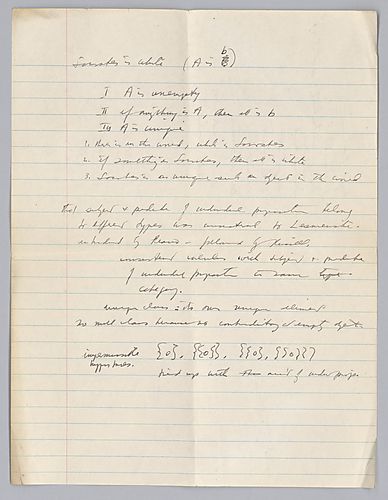 Socrates is white (A is b)
I A is unempty
II if anything is A, then it is b
III A is unique
1. there is in the world, which is Socrates
2. if something is Socrates, then it is white
3. Socrates is an unique such an object in the world
that subject & predicate of individual proposition belong
to different types was unnatural to Lesniewski.
introduced by Peano - followed by Russell.
consistent calculus with subject & predicate
of individual proposition to same type
category.
unique class is its own unique element
no null class because no contradictory or empty object
{0}, {{0}}, {{0}, {{0}}}
types
tied up with this and of